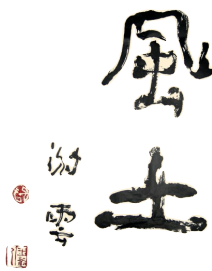 風土
謝雲